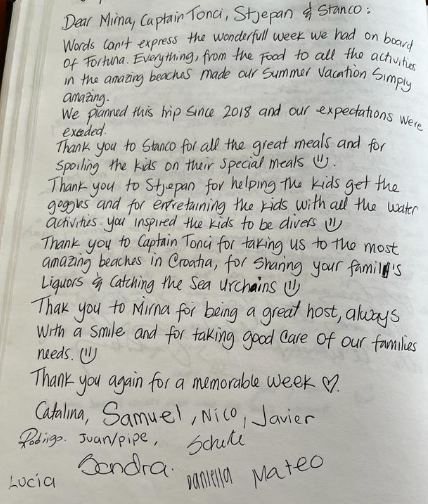 Dear Mirna, Captain Tonci, Stjepan & Stanco:
Words can't express the wonderfull week we had on board
of Fortuna. Everything, from the Food to all the activities
in the amazing beaches made our Summer Vacation Simply
amazing.
We planned this trip since 2018 and our expectations were
exeeded.
Thank you to Stanco for all the great meals and for
spoiling the kids on their special meals (")
Thank you to Stjepan for helping the kids get the
goggles and for entretaining the kids with all the water
activities. you inspired the kids to be divers (")
Thank you to Captain Tonci for taking us to the most
amazing beaches in Croatia, for sharing your family's
Liquors & Catching the Sea Urchains (")
Thak you to Mirna for being a great host, always
with a smile and for taking good care of our families
needs. (")
Thank you again for a memorable week ♡.
Catalina, Samuel, Nico, Javier
Rodrigo. Juan/pipe,
Sandra.
Lucia Daniella Mateo